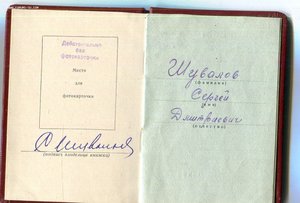 Действительно
без
фотокарточки
Место
для
фотокарточки
(подпись владельца книжки)
Шувалов
(фамилия)
Сергей
(имя)
Дмитриевич
(отчество)